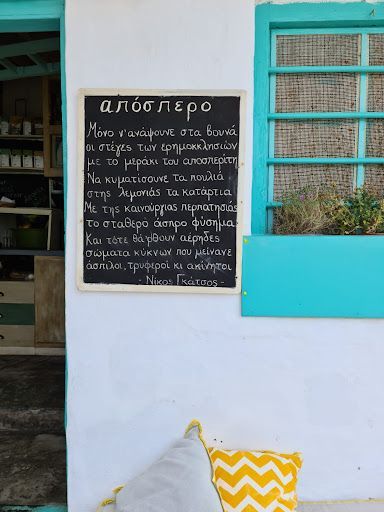 απόσπερο
Μόνο ν' ανάψουνε στα βουνά
οι στέγες των ερημοκλησιών
με το μεράκι του αποσπερίτη
Να κυματίσουνε τα πουλιά
στης λεμονιάς τα κατάρτια
Με της καινούργιας περπατησιάς
το σταθερό άσπρο φύσημα
Και τότε θα'ρθουν αέρηδες
σώματα κύκνων που μείνανε
άσπιλοι, τρυφεροί κι ακίνητοι
- Νίκος Γκάτσος -